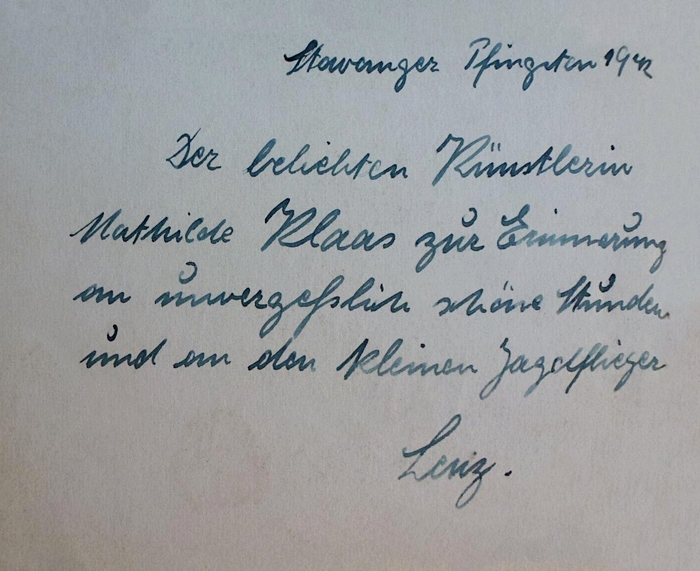 Stavanger Pfingsten 1942
Der beliebten Künstlerin
Mathilde Klaas zur Erinnerung
an unvergeßlich schöne Stunden
und an den kleinen Jagdflieger
Lenz.